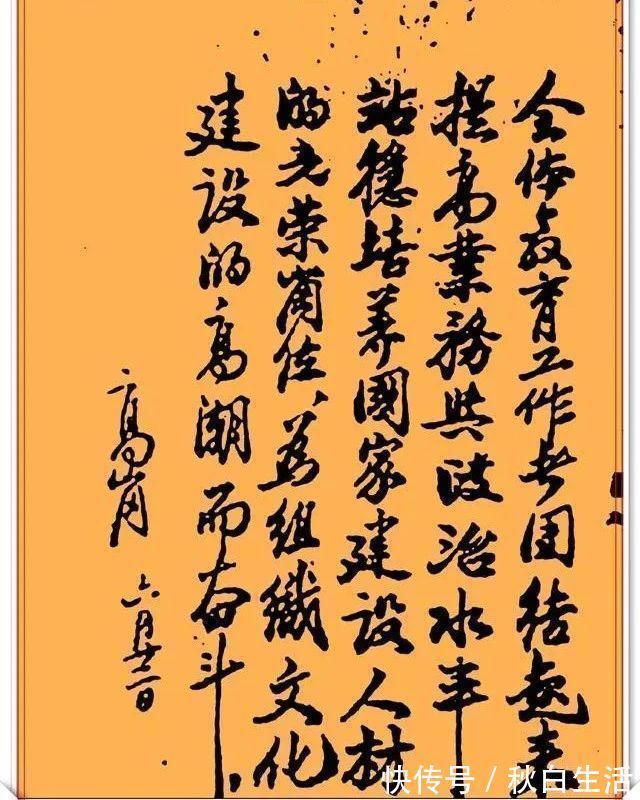 全体教育工作者团结起来
提高業務與政治水平
站穩培养國家建设人材
的光荣崗位、为组織文化
建设的高潮而奋斗
高崗 六月廿二日
快传号／秋白生活